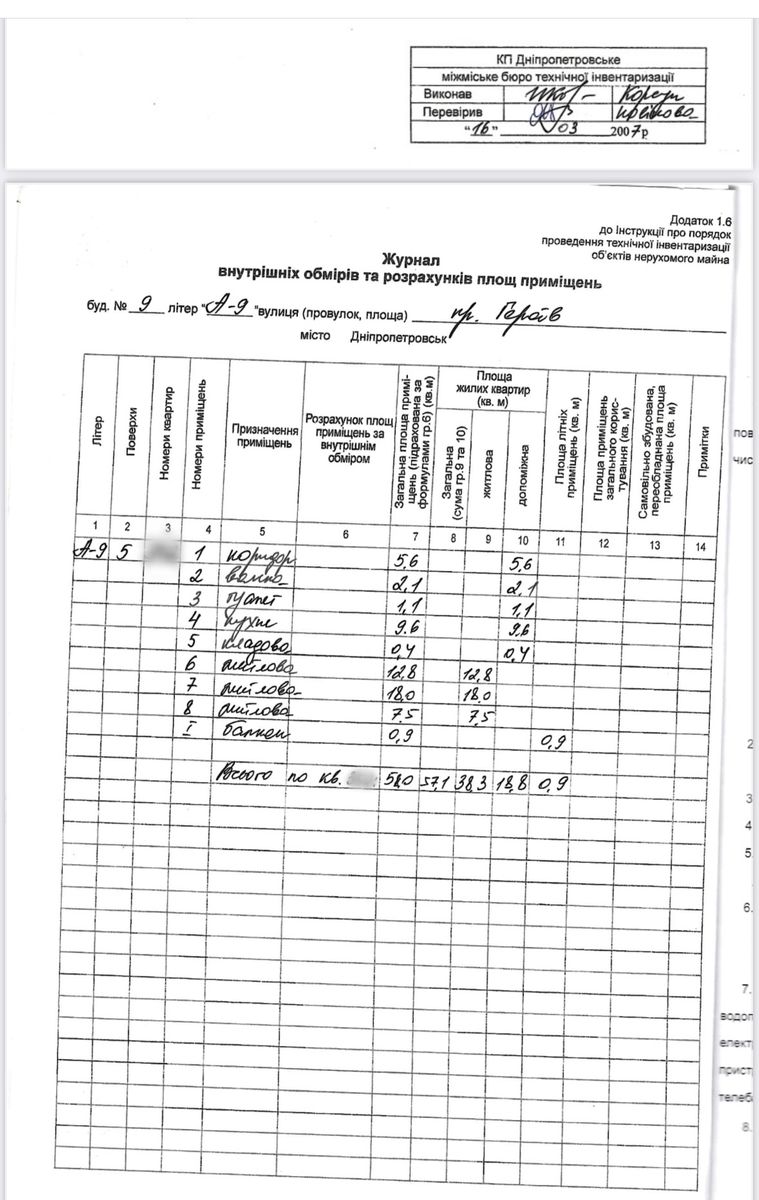 КП Дніпропетровське
міжміське бюро технічної інвентаризації
Виконав
Перевірив
"16" 03 2007р
Додаток 1.6
до Інструкції про порядок
проведення технічної інвентаризації
об'єктів нерухомого майна
Журнал
внутрішніх обмірів та розрахунків площ приміщень
буд. № 9 літер "А-9" вулиця (провулок, площа) пр. Героїв
місто Дніпропетровськ
Літер Поверхи Номери квартир Номери приміщень Призначення приміщень Розрахунок площ приміщень за внутрішнім обміром Загальна площа примі-щень (підрахована за формулами гр.6) (кв.м) Площа жилих квартир (кв. м) Загальна (сума гр.9 та 10) житлова допоміжна Площа літніх приміщень (кв. м) Площа приміщень загального корис-тування (кв. м) Самовільно збудована, переобладнана площа приміщень (кв. м) Примітки
1 2 3 4 5 6 7 8 9 10 11 12 13 14
А-9 5 1 коридор 5,6 5,6
2 ванна 2,1 2,1
3 туалет 1,1 1,1
4 кухня 9.6 9,6
5 кладова 0,4 0,4
6 житлова 12,8 12,8
7 житлова 18,0 18,0
8 житлова 7,5 7,5
I балкон 0,9 0,9
Всього по кв. 58,0 57,1 38,3 18,8 0,9
пов
чис
2
3
4
5
6.
7.
водоп
елект
прист
телеб
8.